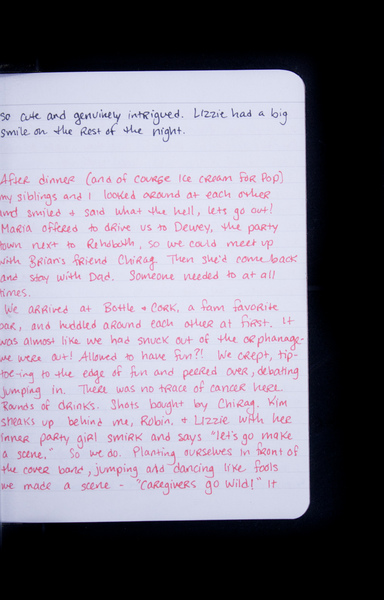 so cute and genuinely intrigued. Lizzie had a big
smile on the rest of the night.
After dinner (and of course ice cream for Pop)
my siblings and I looked around at each other
and smiled + said what the hell, lets go out!
Maria offered to drive us to Dewey, the party
town next to Rehoboth, so we could meet up
with Brian's friend Chirag. Then she'd come back
and stay with Dad. Someone needed to at all
times.
We arrived at Bottle + Cork, a fam favorite
bar, and huddled around each other at first. It
was almost like we had snuck out of the orphanage-
we were out! Allowed to have fun?! We crept, tip-
toe-ing to the edge of fun and peered over, debating
jumping in. There was no trace of cancer here.
Rounds of drinks. Shots bought by Chirag. Kim
sneaks up behind me, Robin, + Lizzie with her
inner party girl smirk and says "let's go make
a scene." So we do. Planting ourselves in front of
the cover band, jumping and dancing like fools
we made a scene - "Caregivers go wild!" It